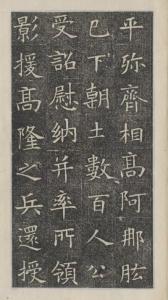 平弥齊相髙阿那肱
已下朝士數百人公
受詔慰納并率所領
影援髙隆之兵還授